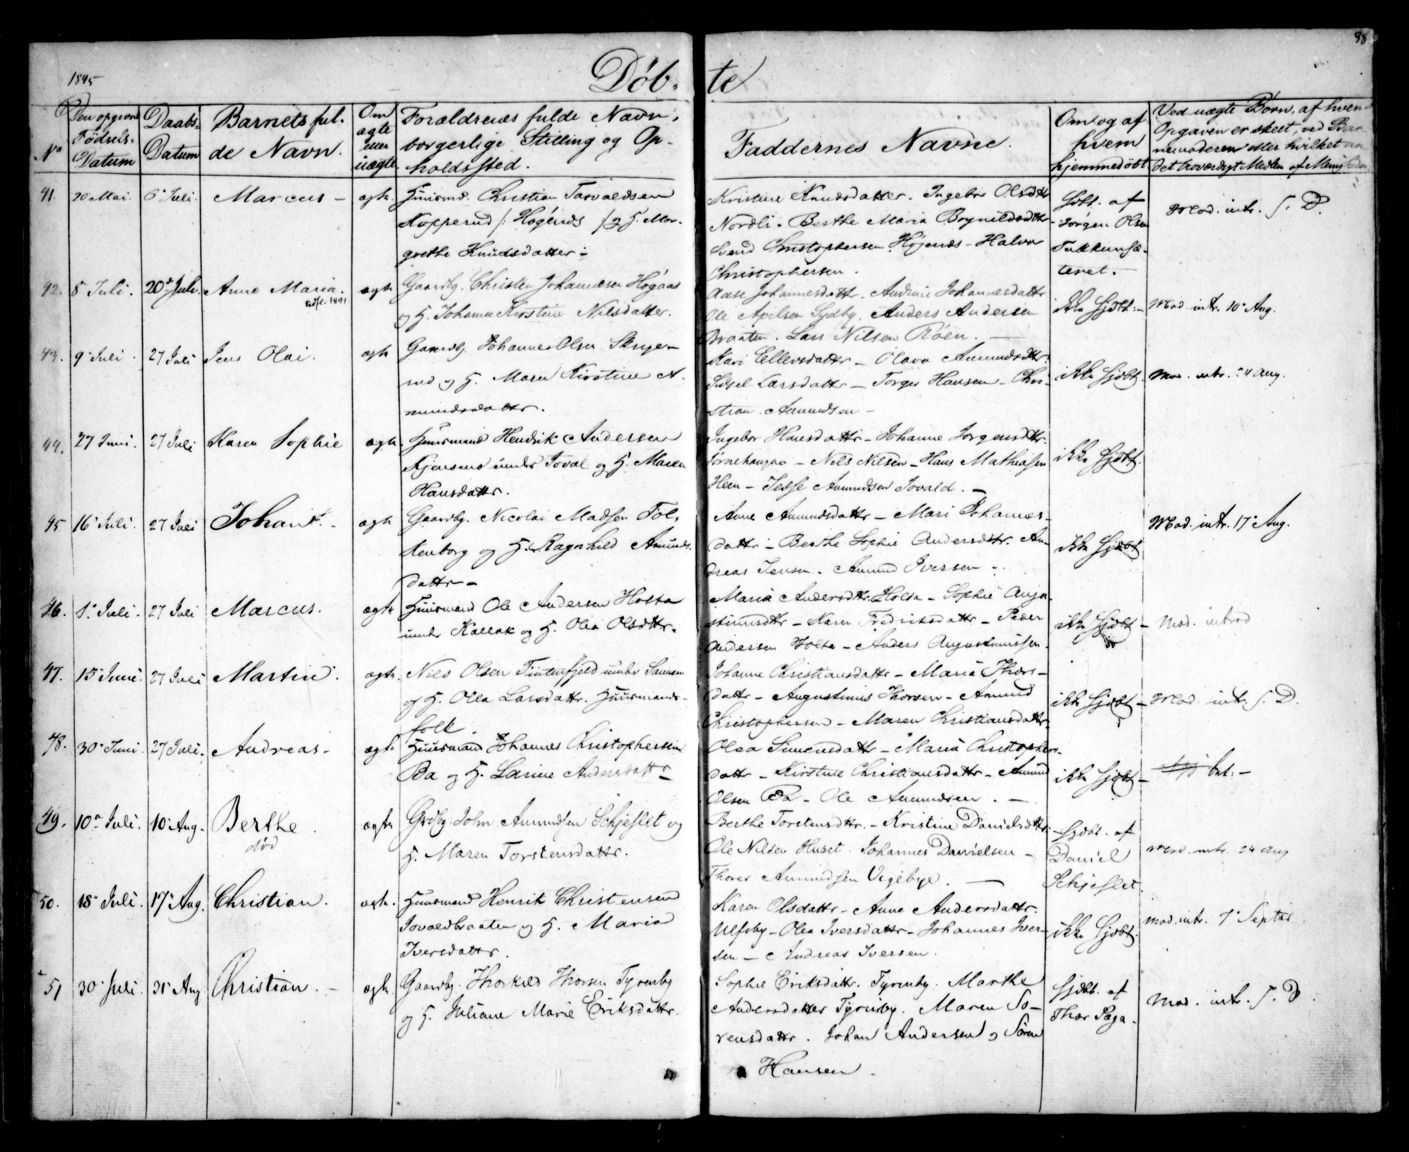 1845
98
Døb- te
No
Den opgivne Fødsels-Datum
Daabs-Datum
Barnets ful-
de Navn.
Om ægte eller uægte.
Forældrenes fulde Navn,
borgerlige Stilling og Op-
holdssted.
Faddernes Navne.
Om og af
hvem
hjemmedøbt
Ved uægte Børn, af hvem
Opgaven er skeet, ved Bar
41. 20 Mai. 6 Juli. Marcus - ægte Huusmd. Christian Torvaldsen
Kopperud Høgenes og H. Mar-
grethe Knudsdatter -
Kristine Knudsdatter. Ingebor Olsdtr
Nordli - Berthe Maria Brynildsdttr
Svend Christophersen Høgenes - Halvor
Christophersen.
Hjdbt. af
Jørgen Olsen
Mod. intr. S. D.
42. 8 Juli. 20de Juli. Anne Maria. ægte Gaardbr. Christen Johannesen Høgaas
og H. Johanne Kirstine Nilsdatter.
Aase Johannesdattr. Andrine Johannesdattr
Ole Axelsen Sydby. Anders Andersen
Braaten. Lars Nilsen Röen. -
ikke Hjdbt. - Mod. intr. 10 Aug.
43. 9 Juli. 27 Juli Jens Olai. ægte Gaardbr. Johannes Olsen Skrye-
rud og H. Maren Kirstine A-
mundsdattr.
Kari Ellevsdattr - Olava Amundsdttr.
Sidsel Larsdattr - Torger Hansen - Chri-
stian Amundsen -
ikke Hjdbt. Mod. intr. 24 Aug.
44. 27 Juni. 27 Juli Karen Sophie ægte. Huusmand Hendrik Andersen
Kjensmo under Joval og H. Maren
Hansdattr.
Ingebor Hansdattr - Johanne Jorgensdtr.
Tørnehaugen - Nils Nilsen - Hans Mathiasen
Heen - Jesse Amundsen Jovald. -
ikke Hjdbt.
45 16 Juli. 27 Juli Johan. ægte. Gaardbr. Nicolai Madsen Fal-
kenborg og H. Ragnhild Amunds
dattr -
Anne Amundsdattr - Mari Johannes-
dattr - Berthe Sophie Andersdttr. An-
dreas Jensen. Amund Iversen -
ikke Hjdbt Mod. intr. 17 Aug.
46. 1 Juli 27 Juli Marcus. ægte Huusmand Ole Andersen Holta
under Kallak og H. Olea Olsdttr.
Maria Andersdttr. Holta - Sophie Augu-
stinusdttr - Karen Fredriksdattr - Peder
Andersen Holta - Anders Augustinussen.
ikke Hjdbt - Mod. introd
47. 15 Juni. 27 Juli Martin. ægte. Nils Olsen under
og H. Olea Larsdattr. Huusmands-
folk.
Johanne Christiansdattr - Maria Thors-
dattr - Augustinus Thorsen - Amund
Christophersen - Maren Christiansdattr
ikke Hjdbt - Mod. intr. S. D.
48. 30 Juni. 27 Juli. Andreas - ægte Huusmand Johannes Christophersen
Bæ og H. Larine Andersdattr -
Olea Simensdattr - Maria Christophers-
dattr - Kirstine Christiansdattr - Amund
Olsen Bæ - Ole Amundsen. -
ikke Hjdbt - int. -
49. 10de Juli. 10 Aug. Berthe. ægte Grdbr. John Amundsen Schjeslet og
død H. Maren Torstensdattr.
Berthe Torstensdttr. - Kristine Danielsdttr.
Ole Nilsen Huset. Johannes Danielsen -
Thorer Amundsen Vegebye. -
Hjdbt. af
Daniel
Schjeslet.
Mod. intr. 24 Aug
50. 18 Juli. 17 Aug. Christian. ægte. Huusmand Henrik Christensen
Jovaldbraaten og H. Maria
Iversdattr.
Karen Olsdattr. - Anne Andersdattr.
Ulfsby - Olea Iversdattr - Johannes Iver-
sen - Andreas Iversen.
ikke Hjdbt. Mod. intr. 7 Septbr
51 30 Juli. 31 Aug Christian. - ægte Gaardbr. Thorkild Thorsen Tyrreby
og H. Juliane Marie Eriksdattr.
Sophie Eriksdattr. Tyrreby. Marthe
Andersdatter Tyrreby. Maren So-
rensdattr. Johan Andersen og Søren
Hansen.
Hjdbt. af
Thor Paga.
Mod. intr. S. D.